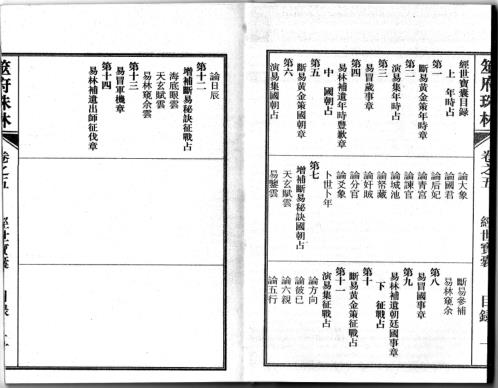 筮府珠林 卷之五 經世寶囊 目錄 一
經世寶囊目錄
上 年時占
第一
斷易黃金策年時章
第二
演易集年時占
第三
易冒歲事章
第四
易林補遺年時豐歉章
中 國朝占
第五
斷易黃金策國朝章
第六
演易集國朝占
論大象
論國君
論后妃
論青宮
論諫官
論城池
論帑藏
論奸賊
論分官
論爻象
卜世卜年
第七
增補斷易秘訣國朝占
天玄賦雲
易鑒雲
斷易參補
易林窺余
第八
易冒國事章
第九
易林補遺朝廷國事章
下 征戰占
第十
斷易黃金策征戰占
第十一
演易集征戰占
論方向
論彼已
論六親
論五行
論日辰
第十二
增補斷易秘訣征戰占
海底眼雲
天玄賦雲
易林窺余雲
第十三
易冒軍機章
第十四
易林補遺出師征伐章
筮府珠林 卷之五 經世寶囊 目錄